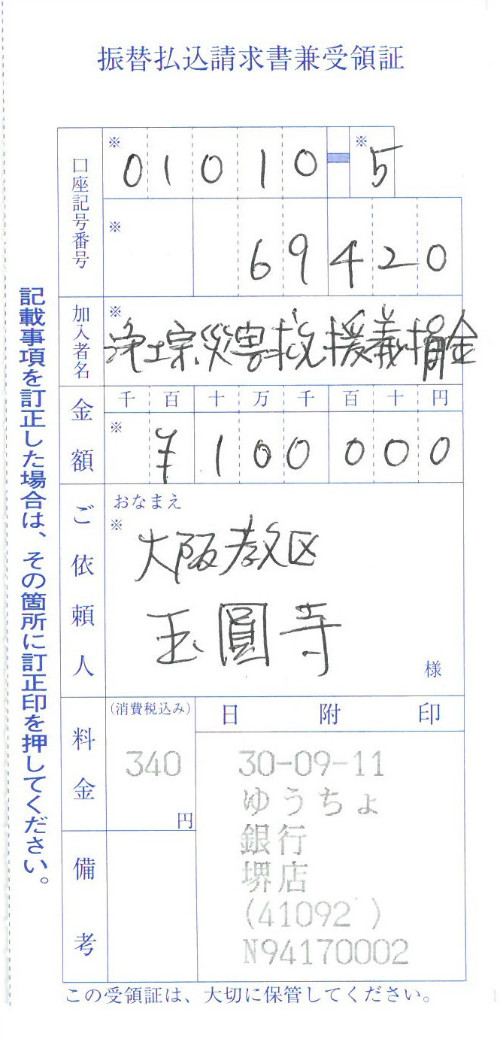 振替払込請求書兼受領証
口座記号番号
※ 01010-5 ※
※ 69420
加入者名
※ 浄土宗災害救援義捐金
金額
千百十万千百十円
※ ¥100000
ご依頼人
おなまえ
※
大阪教区
玉圓寺
様
料金
(消費税込み)
340
円
日附印
30-09-11
ゆうちょ
銀行
堺店
(41092 )
N94170002
備考
この受領証は、大切に保管してください。
記載事項を訂正した場合は、その箇所に訂正印を押してください。